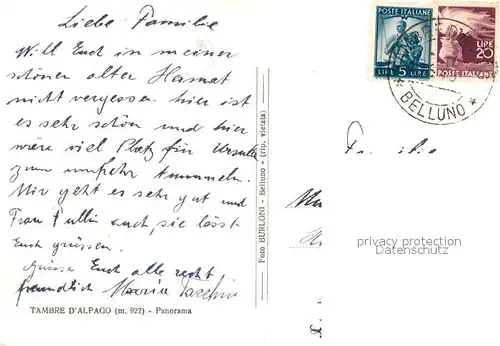 Liebe Familie
Will Euch in meiner
schönen alter Heimat
nicht vergessen. hier ist
es sehr schön und hier
wäre viel Platz für Ursula
zum
Mir geht es sehr gut und
Frau auch, sie lässt
Euch grüssen.
Grüsse Euch alle recht
freundlich Maria
TAMBRE D'ALPAGO (m. 927) - Panorama
Foto BURLONI - Belluno - (rip. vietata)
POSTE ITALIANE
LIRE 5 LIRE
LIRE
20
POSTE ITALIANE
* BELLUNO *
Familie
privacy protection
Datenschutz